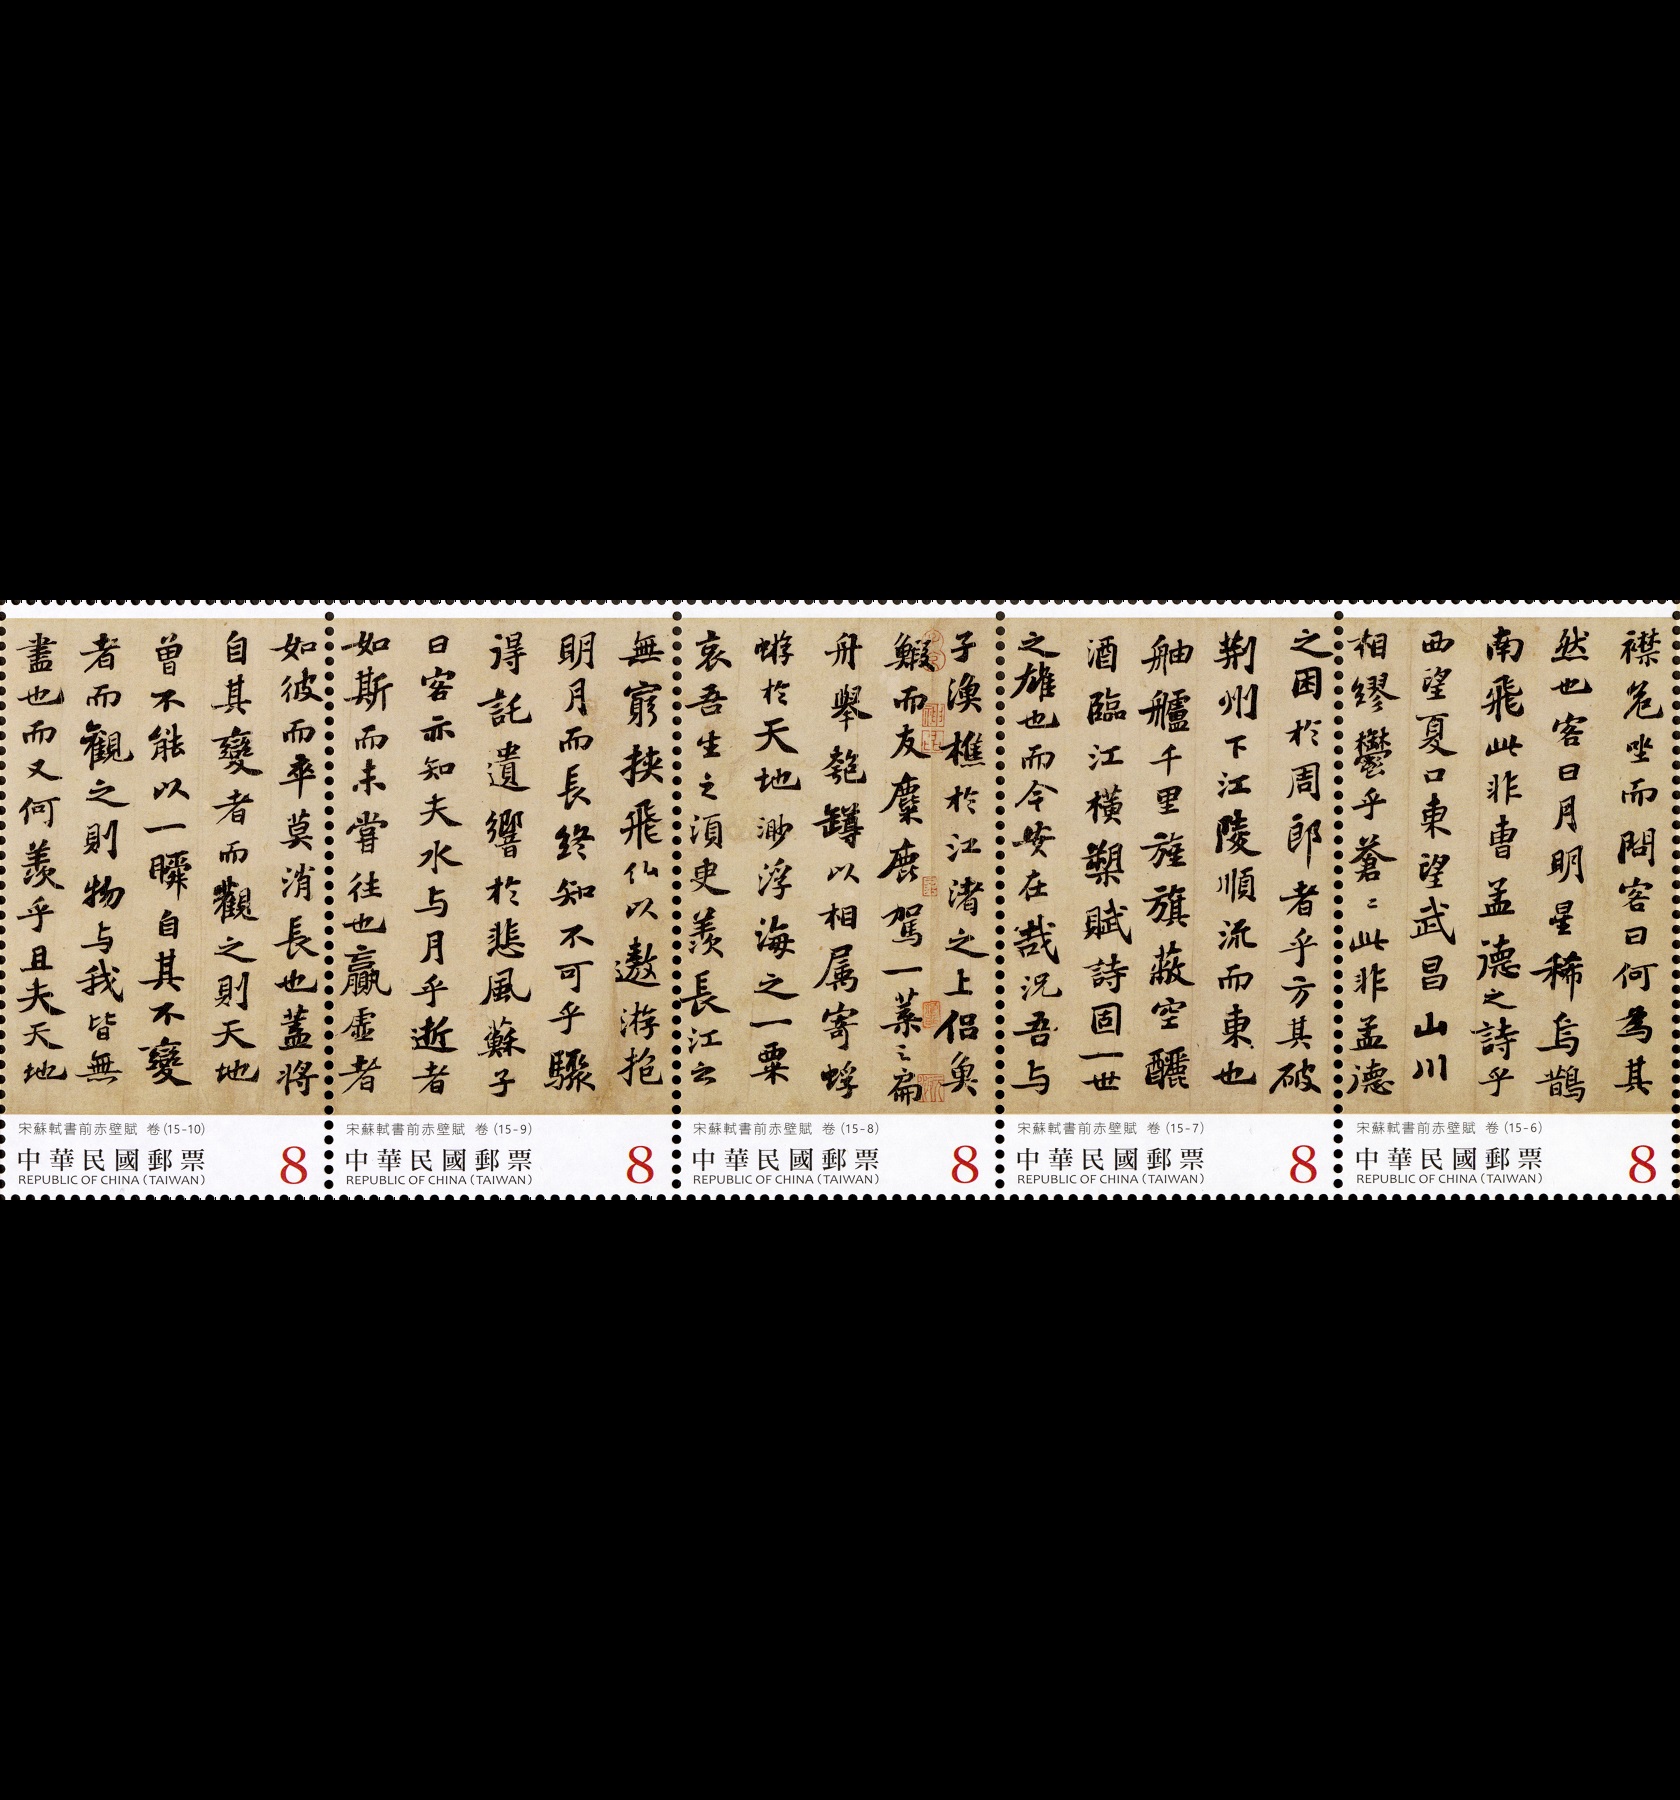 襟危坐而問客曰何為其
然也客曰月明星稀烏鵲
南飛此非曹孟德之詩乎
西望夏口東望武昌山川
相繆鬱乎蒼〻此非孟德
宋蘇軾書前赤壁賦 卷 (15-6)
中華民國郵票 8
REPUBLIC OF CHINA (TAIWAN)
之困於周郎者乎方其破
荊州下江陵順流而東也
舳艫千里旌旗蔽空釃
酒臨江橫槊賦詩固一世
之雄也而今安在哉況吾与
宋蘇軾書前赤壁賦 卷 (15-7)
中華民國郵票 8
REPUBLIC OF CHINA (TAIWAN)
子漁樵於江渚之上侶魚
鰕而友麋鹿駕一葉之扁
舟舉匏罇以相属寄蜉
蝣於天地渺浮海之一粟
哀吾生之須臾羨長江之
宋蘇軾書前赤壁賦 卷 (15-8)
中華民國郵票 8
REPUBLIC OF CHINA (TAIWAN)
無窮挾飛仙以遨游抱
明月而長終知不可乎驟
得託遺響於悲風蘇子
曰客亦知夫水与月乎逝者
如斯而未嘗往也贏虛者
宋蘇軾書前赤壁賦 卷 (15-9)
中華民國郵票 8
REPUBLIC OF CHINA (TAIWAN)
如彼而卒莫消長也蓋將
自其變者而觀之則天地
曾不能以一瞬自其不變
者而觀之則物与我皆無
盡也而又何羨乎且夫天地
宋蘇軾書前赤壁賦 卷 (15-10)
中華民國郵票 8
REPUBLIC OF CHINA (TAIWAN)